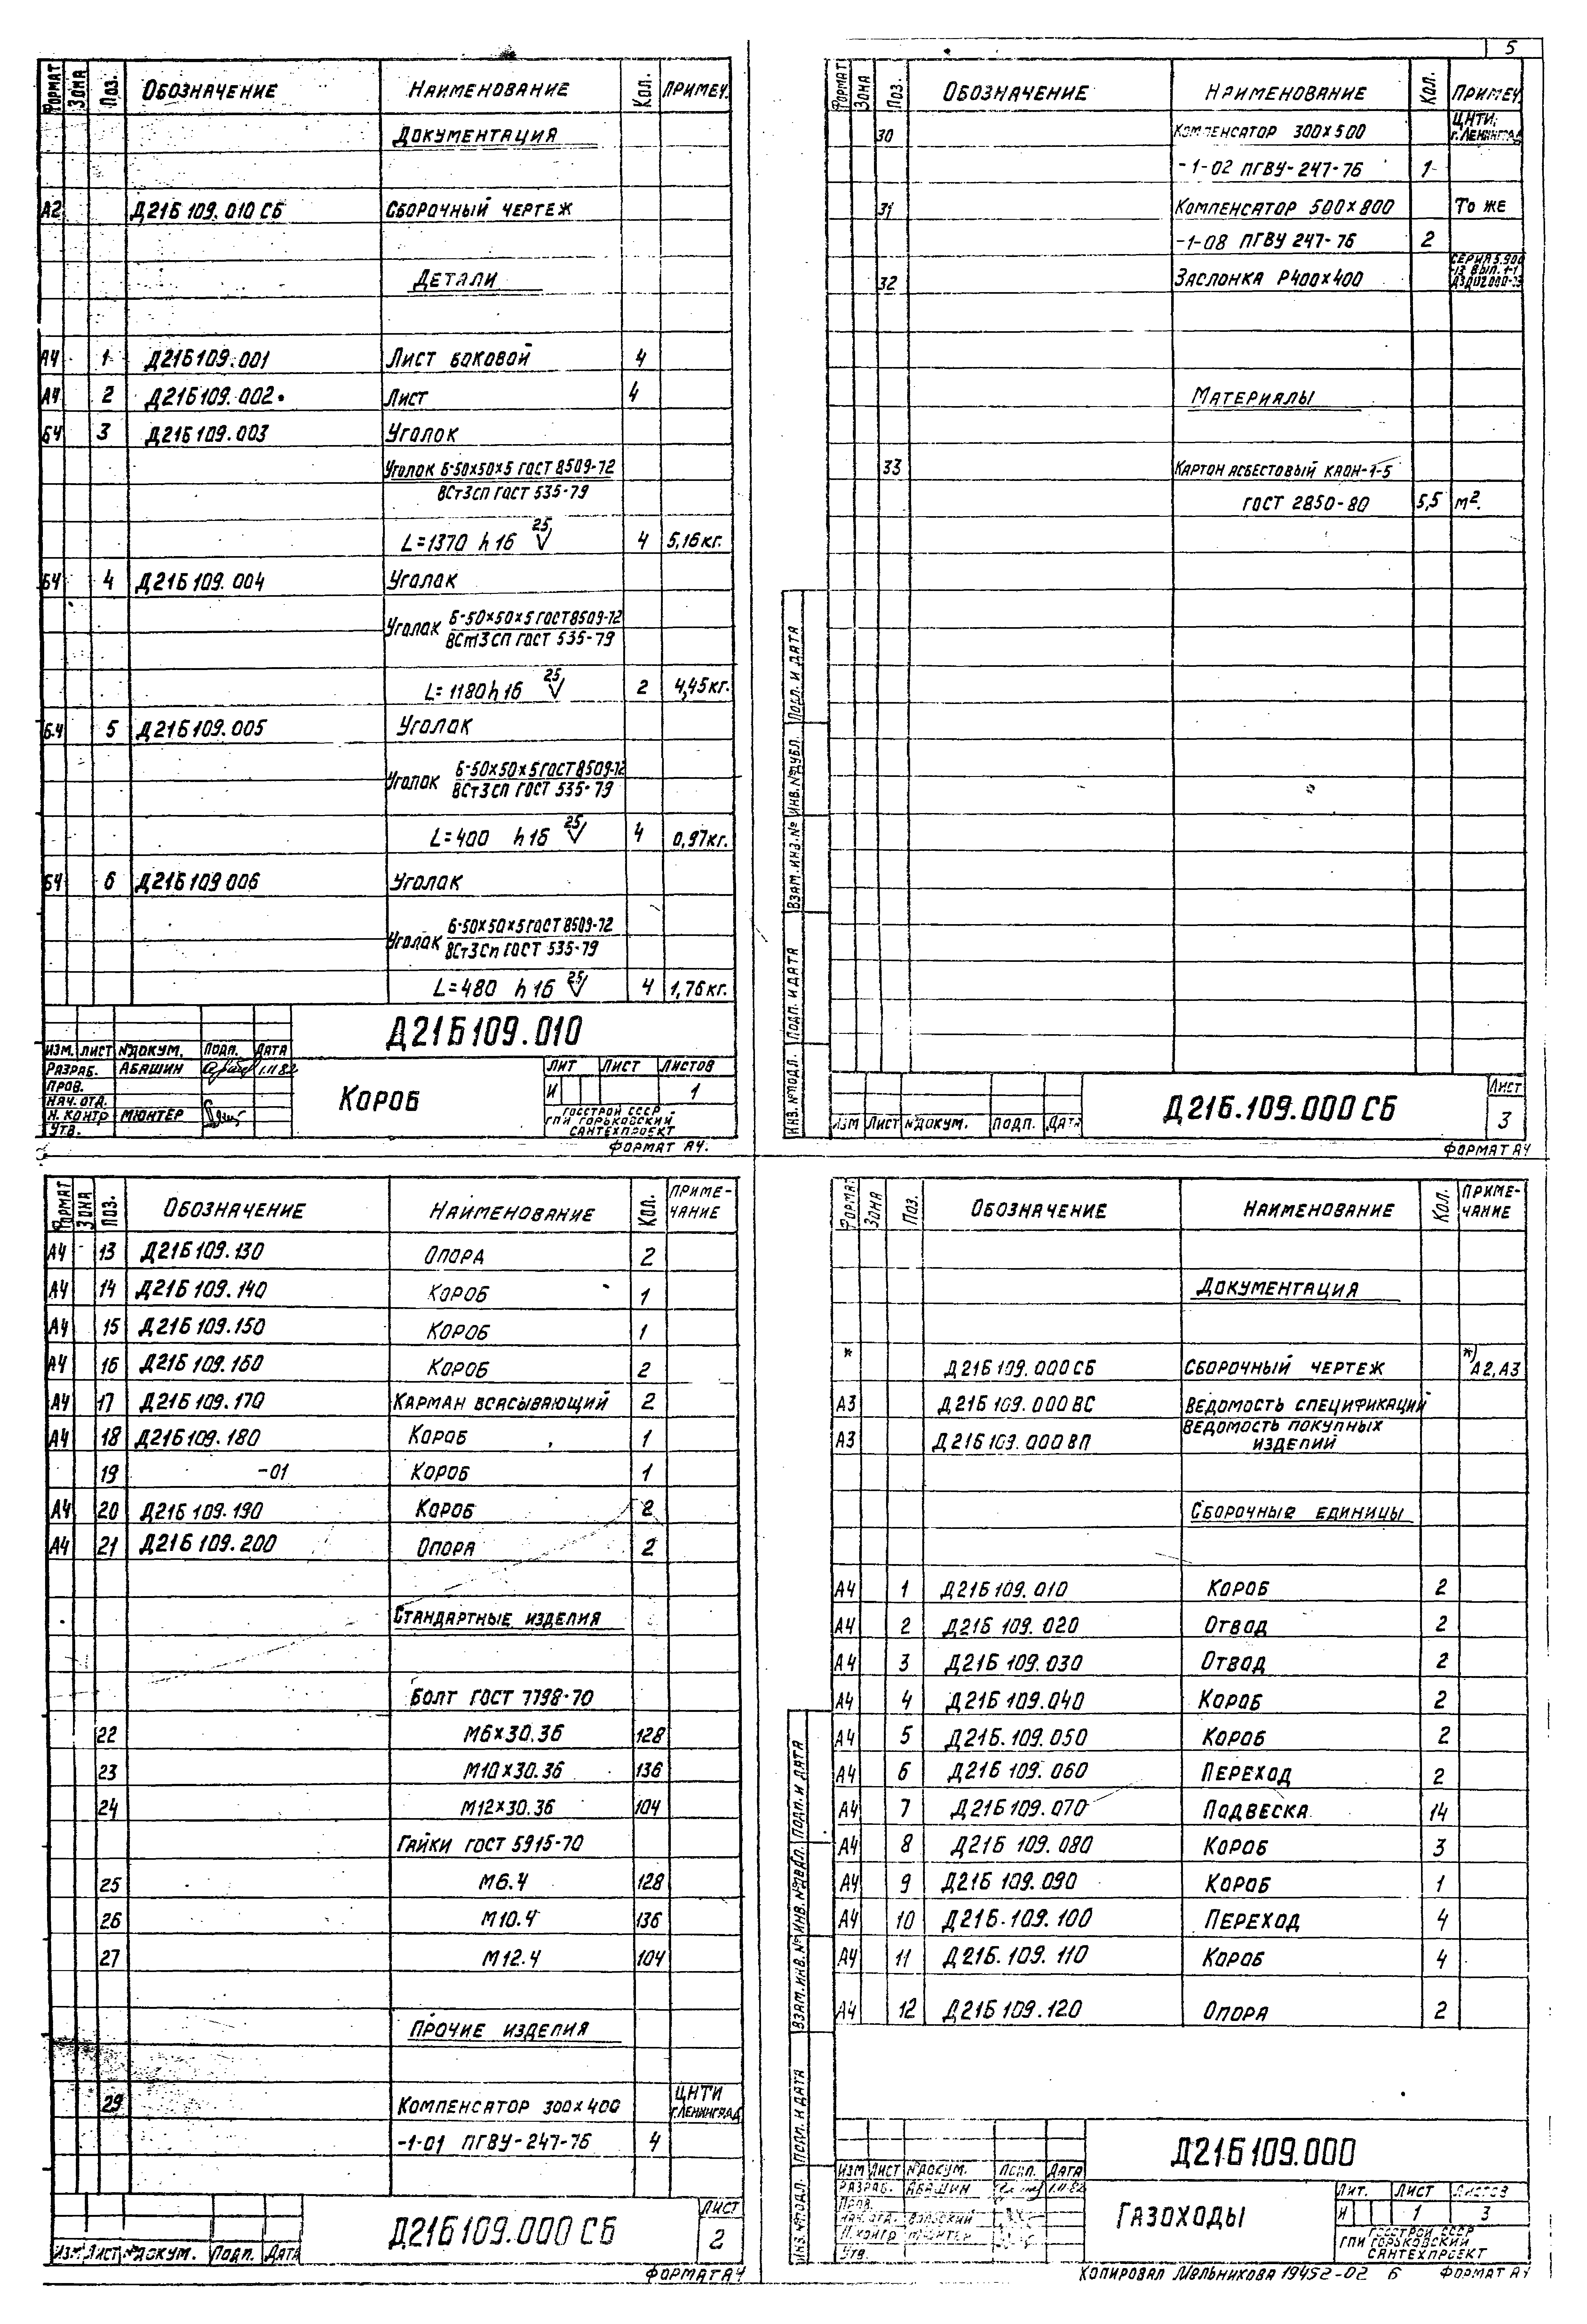 ФОРМАТ ЗОНА ПОЗ. ОБОЗНАЧЕНИЕ НАИМЕНОВАНИЕ КОЛ. ПРИМЕЧ.
ДОКУМЕНТАЦИЯ
А2 Д21Б109.010 СБ СБОРОЧНЫЙ ЧЕРТЕЖ
ДЕТАЛИ
А4 1 Д21Б109.001 ЛИСТ БОКОВОЙ 4
А4 2 Д21Б109.002 ЛИСТ 4
БЧ 3 Д21Б109.003 УГОЛОК
Уголок Б-50х50х5 ГОСТ 8509-72
ВСт3сп ГОСТ 535-79
L=1370 h16 25 4 5,16кг.
БЧ 4 Д21Б109.004 УГОЛОК
Уголок Б-50х50х5 ГОСТ 8509-72
ВСт3сп ГОСТ 535-79
L=1180 h16 25 2 4,45кг.
БЧ 5 Д21Б109.005 УГОЛОК
Уголок Б-50х50х5 ГОСТ 8509-72
ВСт3сп ГОСТ 535-79
L=400 h16 25 4 0,97кг.
БЧ 6 Д21Б109 006 УГОЛОК
Уголок Б-50х50х5 ГОСТ 8509-72
ВСт3сп ГОСТ 535-79
L=480 h16 25 4 1,76кг.
Д21Б109.010
ИЗМ. ЛИСТ №ДОКУМ. ПОДП. ДАТА
РАЗРАБ. АБАШИН 1.11.82
ПРОВ.
НАЧ. ОТД.
Н. КОНТР МЮНТЕР
УТВ.
КОРОБ
ЛИТ ЛИСТ ЛИСТОВ
И 1
ГОССТРОЙ СССР
ГПИ ГОРЬКОВСКИЙ
САНТЕХПРОЕКТ
ФОРМАТ А4.
5
ФОРМАТ ЗОНА ПОЗ. ОБОЗНАЧЕНИЕ НАИМЕНОВАНИЕ КОЛ. ПРИМЕЧ.
30 КОМПЕНСАТОР 300х500 ЦНТИ, г. ЛЕНИНГРАД
-1-02 ПГВУ-247-76 1
31 КОМПЕНСАТОР 500х800 ТО ЖЕ
-1-08 ПГВУ 247-76 2
32 ЗАСЛОНКА Р400х400 СЕРИЯ 5.904
МАТЕРИАЛЫ
33 КАРТОН АСБЕСТОВЫЙ КАОН-1-5
ГОСТ 2850-80 5,5 м².
ИНВ. №ПОДЛ. ПОДП. И ДАТА ВЗАМ. ИНВ. № ИНВ. №ДУБЛ. ПОДП. И ДАТА
ИЗМ ЛИСТ №ДОКУМ. ПОДП. ДАТА
Д21Б.109.000 СБ
ЛИСТ
3
ФОРМАТ А4
ФОРМАТ ЗОНА ПОЗ. ОБОЗНАЧЕНИЕ НАИМЕНОВАНИЕ КОЛ. ПРИМЕ-ЧАНИЕ
А4 13 Д21Б109.130 ОПОРА 2
А4 14 Д21Б109.140 КОРОБ 1
А4 15 Д21Б109.150 КОРОБ 1
А4 16 Д21Б109.160 КОРОБ 2
А4 17 Д21Б109.170 КАРМАН ВСАСЫВАЮЩИЙ 2
А4 18 Д21Б109.180 КОРОБ 1
19 -01 КОРОБ 1
А4 20 Д21Б109.190 КОРОБ 2
А4 21 Д21Б109.200 ОПОРА 2
СТАНДАРТНЫЕ ИЗДЕЛИЯ
БОЛТ ГОСТ 7798-70
22 М6х30.36 128
23 М10х30.36 136
24 М12х30.36 104
ГАЙКИ ГОСТ 5915-70
25 М6.4 128
26 М10.4 136
27 М12.4 104
ПРОЧИЕ ИЗДЕЛИЯ
29 КОМПЕНСАТОР 300х400 ЦНТИ г. ЛЕНИНГРАД
-1-01 ПГВУ-247-76 4
ИЗМ ЛИСТ №ДОКУМ. ПОДП. ДАТА
Д21Б109.000 СБ
ЛИСТ
2
ФОРМАТ А4
ФОРМА. ЗОНА ПОЗ. ОБОЗНАЧЕНИЕ НАИМЕНОВАНИЕ КОЛ. ПРИМЕ-ЧАНИЕ
ДОКУМЕНТАЦИЯ
* Д21Б109.000 СБ СБОРОЧНЫЙ ЧЕРТЕЖ *) А2, А3
А3 Д21Б109.000 ВС ВЕДОМОСТЬ СПЕЦИФИКАЦИЙ
А3 Д21Б109.000 ВП ВЕДОМОСТЬ ПОКУПНЫХ ИЗДЕЛИЙ
СБОРОЧНЫЕ ЕДИНИЦЫ
А4 1 Д21Б109.010 КОРОБ 2
А4 2 Д21Б109.020 ОТВОД 2
А4 3 Д21Б109.030 ОТВОД 2
А4 4 Д21Б109.040 КОРОБ 2
А4 5 Д21Б.109.050 КОРОБ 2
А4 6 Д21Б109.060 ПЕРЕХОД 2
А4 7 Д21Б109.070 ПОДВЕСКА 14
А4 8 Д21Б109.080 КОРОБ 3
А4 9 Д21Б109.090 КОРОБ 1
А4 10 Д21Б.109.100 ПЕРЕХОД 4
А4 11 Д21Б.109.110 КОРОБ 4
А4 12 Д21Б109.120 ОПОРА 2
ИНВ. №ПОДЛ. ПОДП. И ДАТА ВЗАМ. ИНВ. № ИНВ. №ДУБЛ. ПОДП. И ДАТА
Д21Б109.000
ИЗМ ЛИСТ №ДОКУМ. ПОДП. ДАТА
РАЗРАБ. АБАШИН 1.11.82
ПРОВ.
НАЧ. ОТД.
Н. КОНТР МЮНТЕР
УТВ.
ГАЗОХОДЫ
ЛИТ. ЛИСТ ЛИСТОВ
И 1 3
ГОССТРОЙ СССР
ГПИ ГОРЬКОВСКИЙ
САНТЕХПРОЕКТ
КОПИРОВАЛ Мельникова 19452-02 6 ФОРМАТ А4